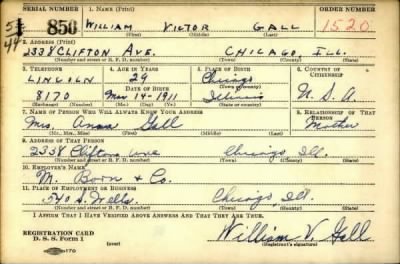 SERIAL NUMBER 1. NAME (Print) ORDER NUMBER
850 WILLIAM VICTOR GALL 1520
(First) (Middle) (Last)
2. ADDRESS (Print)
2338 CLIFTON AVE. CHICAGO, ILL.
(Number and street or R. F. D. number) (Town) (County) (State)
3. TELEPHONE 4. AGE IN YEARS 5. PLACE OF BIRTH 6. COUNTRY OF CITIZENSHIP
LINCOLN 29 Chicago
DATE OF BIRTH (Town or county)
8170 Mar 14 - 1911 Illinois U. S. A.
(Exchange) (Number) (Mo.) (Day) (Yr.) (State or country)
7. NAME OF PERSON WHO WILL ALWAYS KNOW YOUR ADDRESS 8. RELATIONSHIP OF THAT PERSON
Mrs. Anna Gall Mother
(Mr., Mrs., Miss) (First) (Middle) (Last)
9. ADDRESS OF THAT PERSON
2338 Clifton ave Chicago Ill.
(Number and street or R. F. D. number) (Town) (County) (State)
10. EMPLOYER'S NAME
M. Born & Co.
11. PLACE OF EMPLOYMENT OR BUSINESS
540 S. Wells Chicago, Ill.
(Number and street or R. F. D. number) (Town) (County) (State)
I AFFIRM THAT I HAVE VERIFIED ABOVE ANSWERS AND THAT THEY ARE TRUE.
REGISTRATION CARD William V. Gall
D. S. S. Form 1 (over) (Registrant's signature)